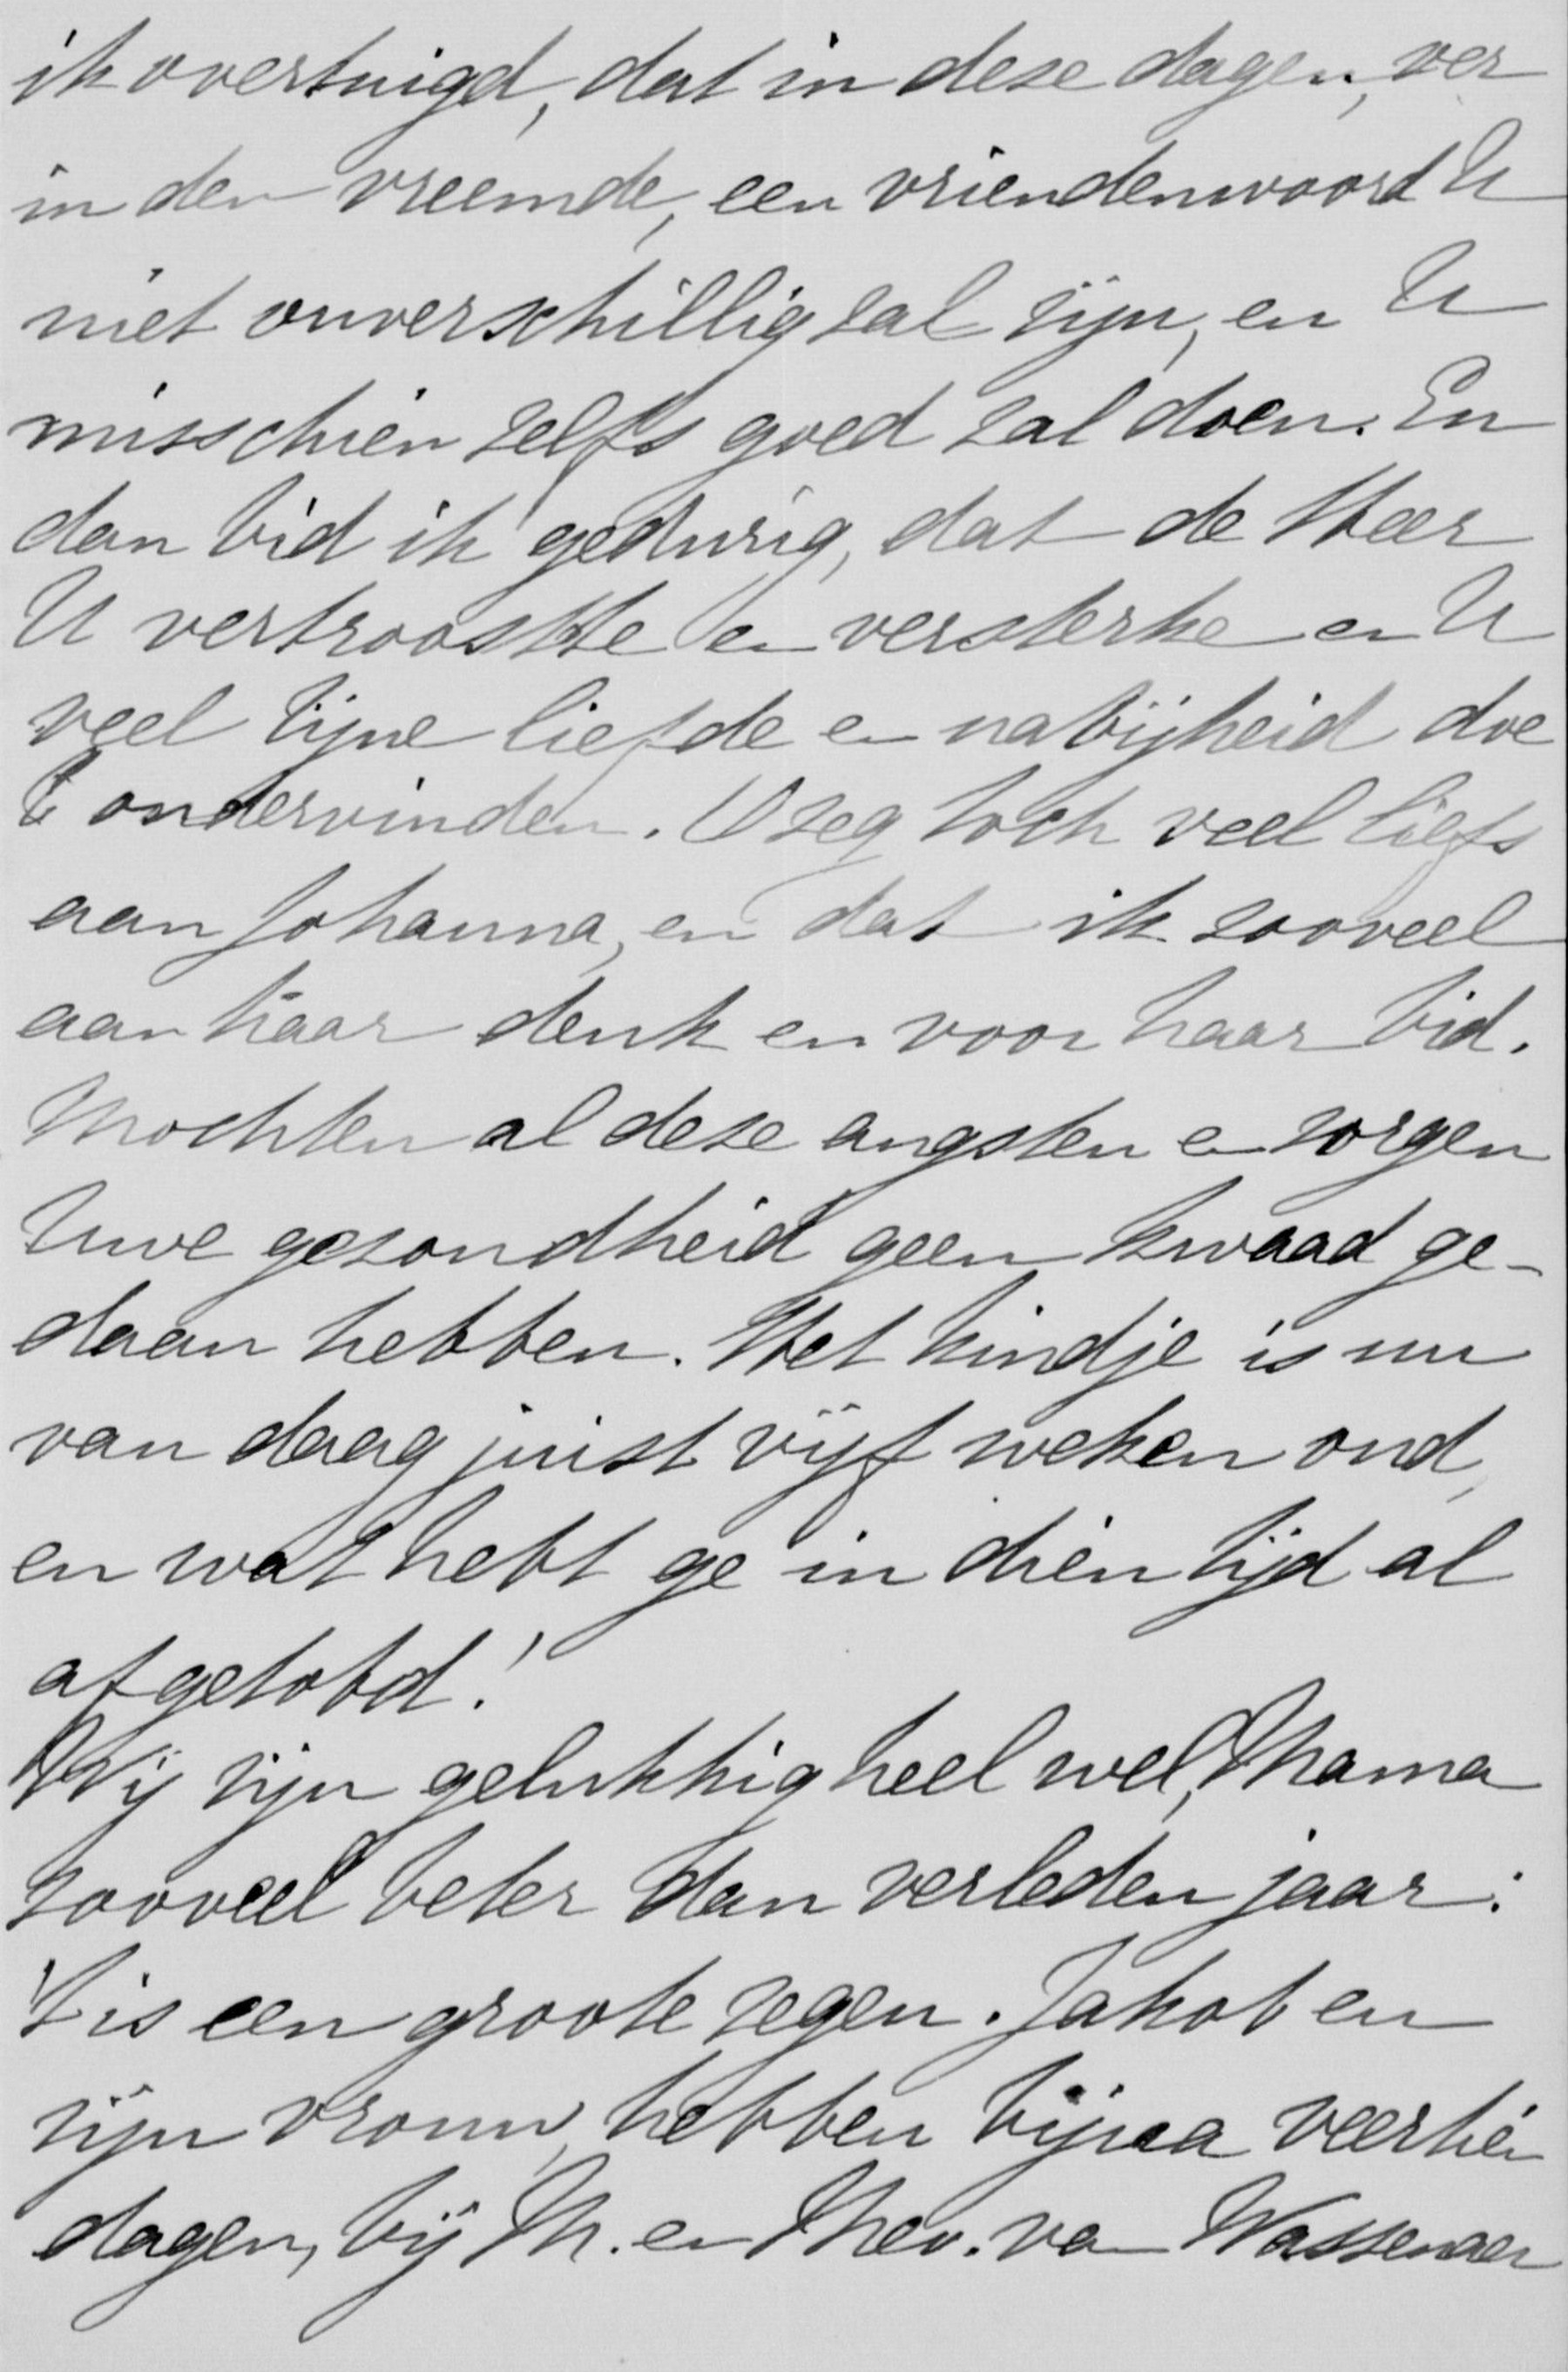 ik overtuigd, dat in deze dagen, ver
in den vreemde, een vriendenwoord U
niet onverschillig zal zijn, en U
misschien zelfs goed zal doen. En
dan bid ik gedurig, dat de Heer
U vertrooste en versterke en U
veel zijne liefde en nabijheid doe
ondervinden. O zeg toch veel liefs
aan Johanna, en dat ik zooveel
aan haar denk en voor haar bid.
Mochten al deze angsten en zorgen
Uwe gezondheid geen kwaad ge-
daan hebben. Het kindje is nu
van daag juist vijf weken oud,
en wat hebt ge in dien tijd al
afgetobd!
Wij zijn gelukkig heel wel, Mama
zooveel beter dan verleden jaar:
't is een groote zegen. Jakob en
zijn vrouw, hebben bijna veertien
dagen, bij M. en Mev. van Wassenaer